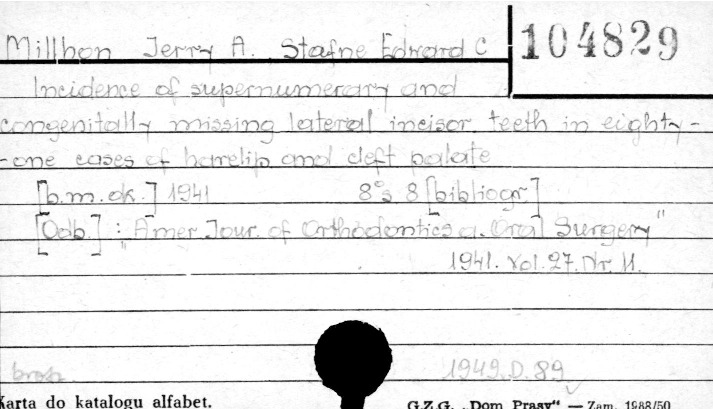 Millhon Jerry A. Stafne Edward C
104829
Incidence of supernumerary and
congenitally missing lateral incisor teeth in eighty-
-one cases of harelip and cleft palate
[b.m.dk.] 1941 8° s. 8 [bibliogr.]
[Odb.] : "Amer. Jour. of Orthodontics a. Oral Surgery"
1941. Vol. 27. Nr. 11.
brosz 1949.D.89
Karta do katalogu alfabet. G.Z.G. „Dom Prasy" — Zam. 1988/50